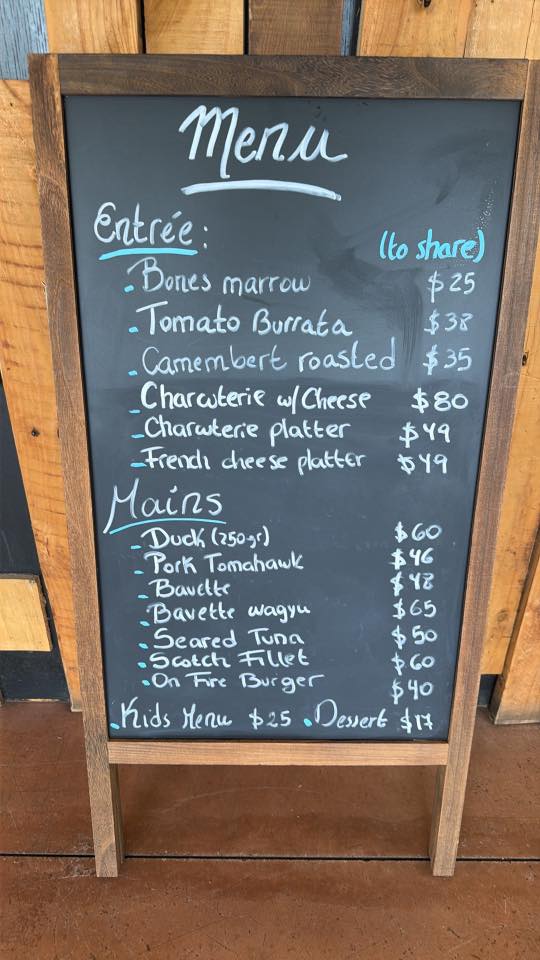 Menu
Entrée: (to share)
Bones marrow $25
Tomato Burrata $38
Camembert roasted $35
Charcuterie w/Cheese $80
Charcuterie platter $49
French cheese platter $49
Mains
Duck (250gr) $60
Pork Tomahawk $46
Bavette $48
Bavette wagyu $65
Seared Tuna $50
Scotch Fillet $60
On Fire Burger $40
Kids Menu $25 Dessert $17